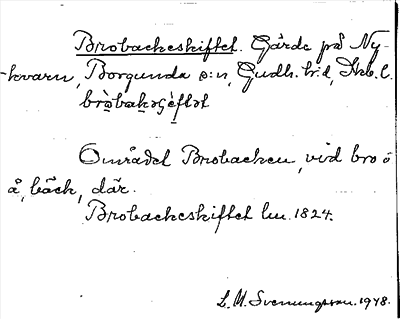 Brobackeskiftet. Gärde på Ny-
-kvarn, Borgunda s:n, Gudh. hd, Skb. l.
bròbakəʃèftət
Området Brobacken, vid bro ö
å, bäck, där.
Brobackeskiftet lm. 1824.
L. M. Svenungsson. 1948.